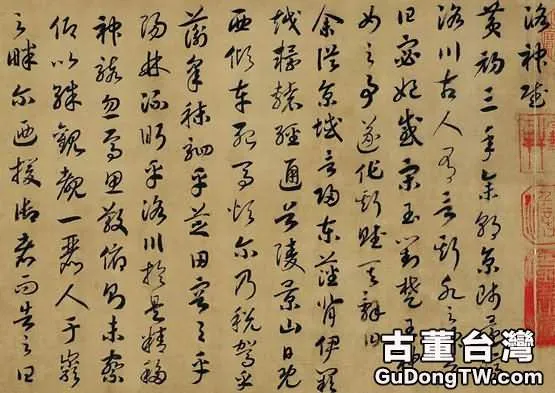 洛神賦
黃初三年余朝京師還
洛川古人有言斯水之
曰宓妃感宋玉對楚王
女之事遂作斯賦其辭曰
余從京域言歸東藩背伊闕
越轘轅經通谷陵景山日既
西傾車殆馬煩爾乃稅駕乎
蘅皋秣駟乎芝田容與乎
陽林流眄乎洛川於是精移
神駭忽焉思散俯則未察
仰以殊觀覩一麗人于巖
之畔爾迺援御者而告之曰
古董台灣
GuDongTW.com